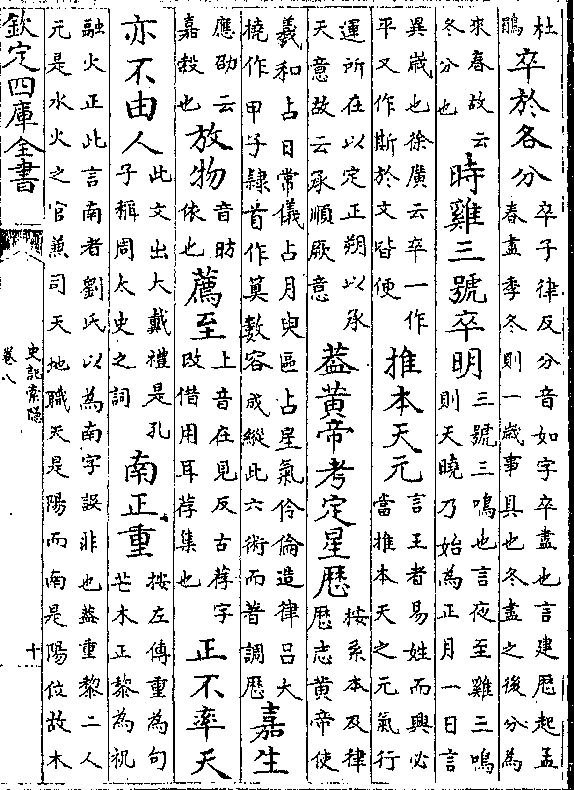 杜鵑卒於各分卒子律反分音如字卒盡也言建厯起孟春盡季冬則一歲事具也冬盡之後分為
來春故云冬分也時雞三號卒明三號三鳴也言夜至雞三鳴則天曉乃始為正月一日言
異歲也徐廣云卒一作平又作斯於文皆便推本天元言王者易姓而興必當推本天之元氣行
運所在以定正朔以承天意故云承順厥意葢黄帝考定星厯按系本及律厯志黄帝使
羲和占日常儀占月臾區占星氣伶倫造律呂大橈作甲子隸首作算數容成縱此六術而著調厯嘉生
應劭云嘉穀也放物音昉依也薦至上音在見反古荐字攺借用耳荐集也正不率天
亦不由人此文出大戴禮是孔子稱周太史之詞南正重按左傳重為句芒木正黎為祝
融火正此言南者劉氏以為南字誤非也葢重黎二人元是水火之官兼司天地職天是陽而南是陽位故木
欽定四庫全書
史記索隱
卷八
十